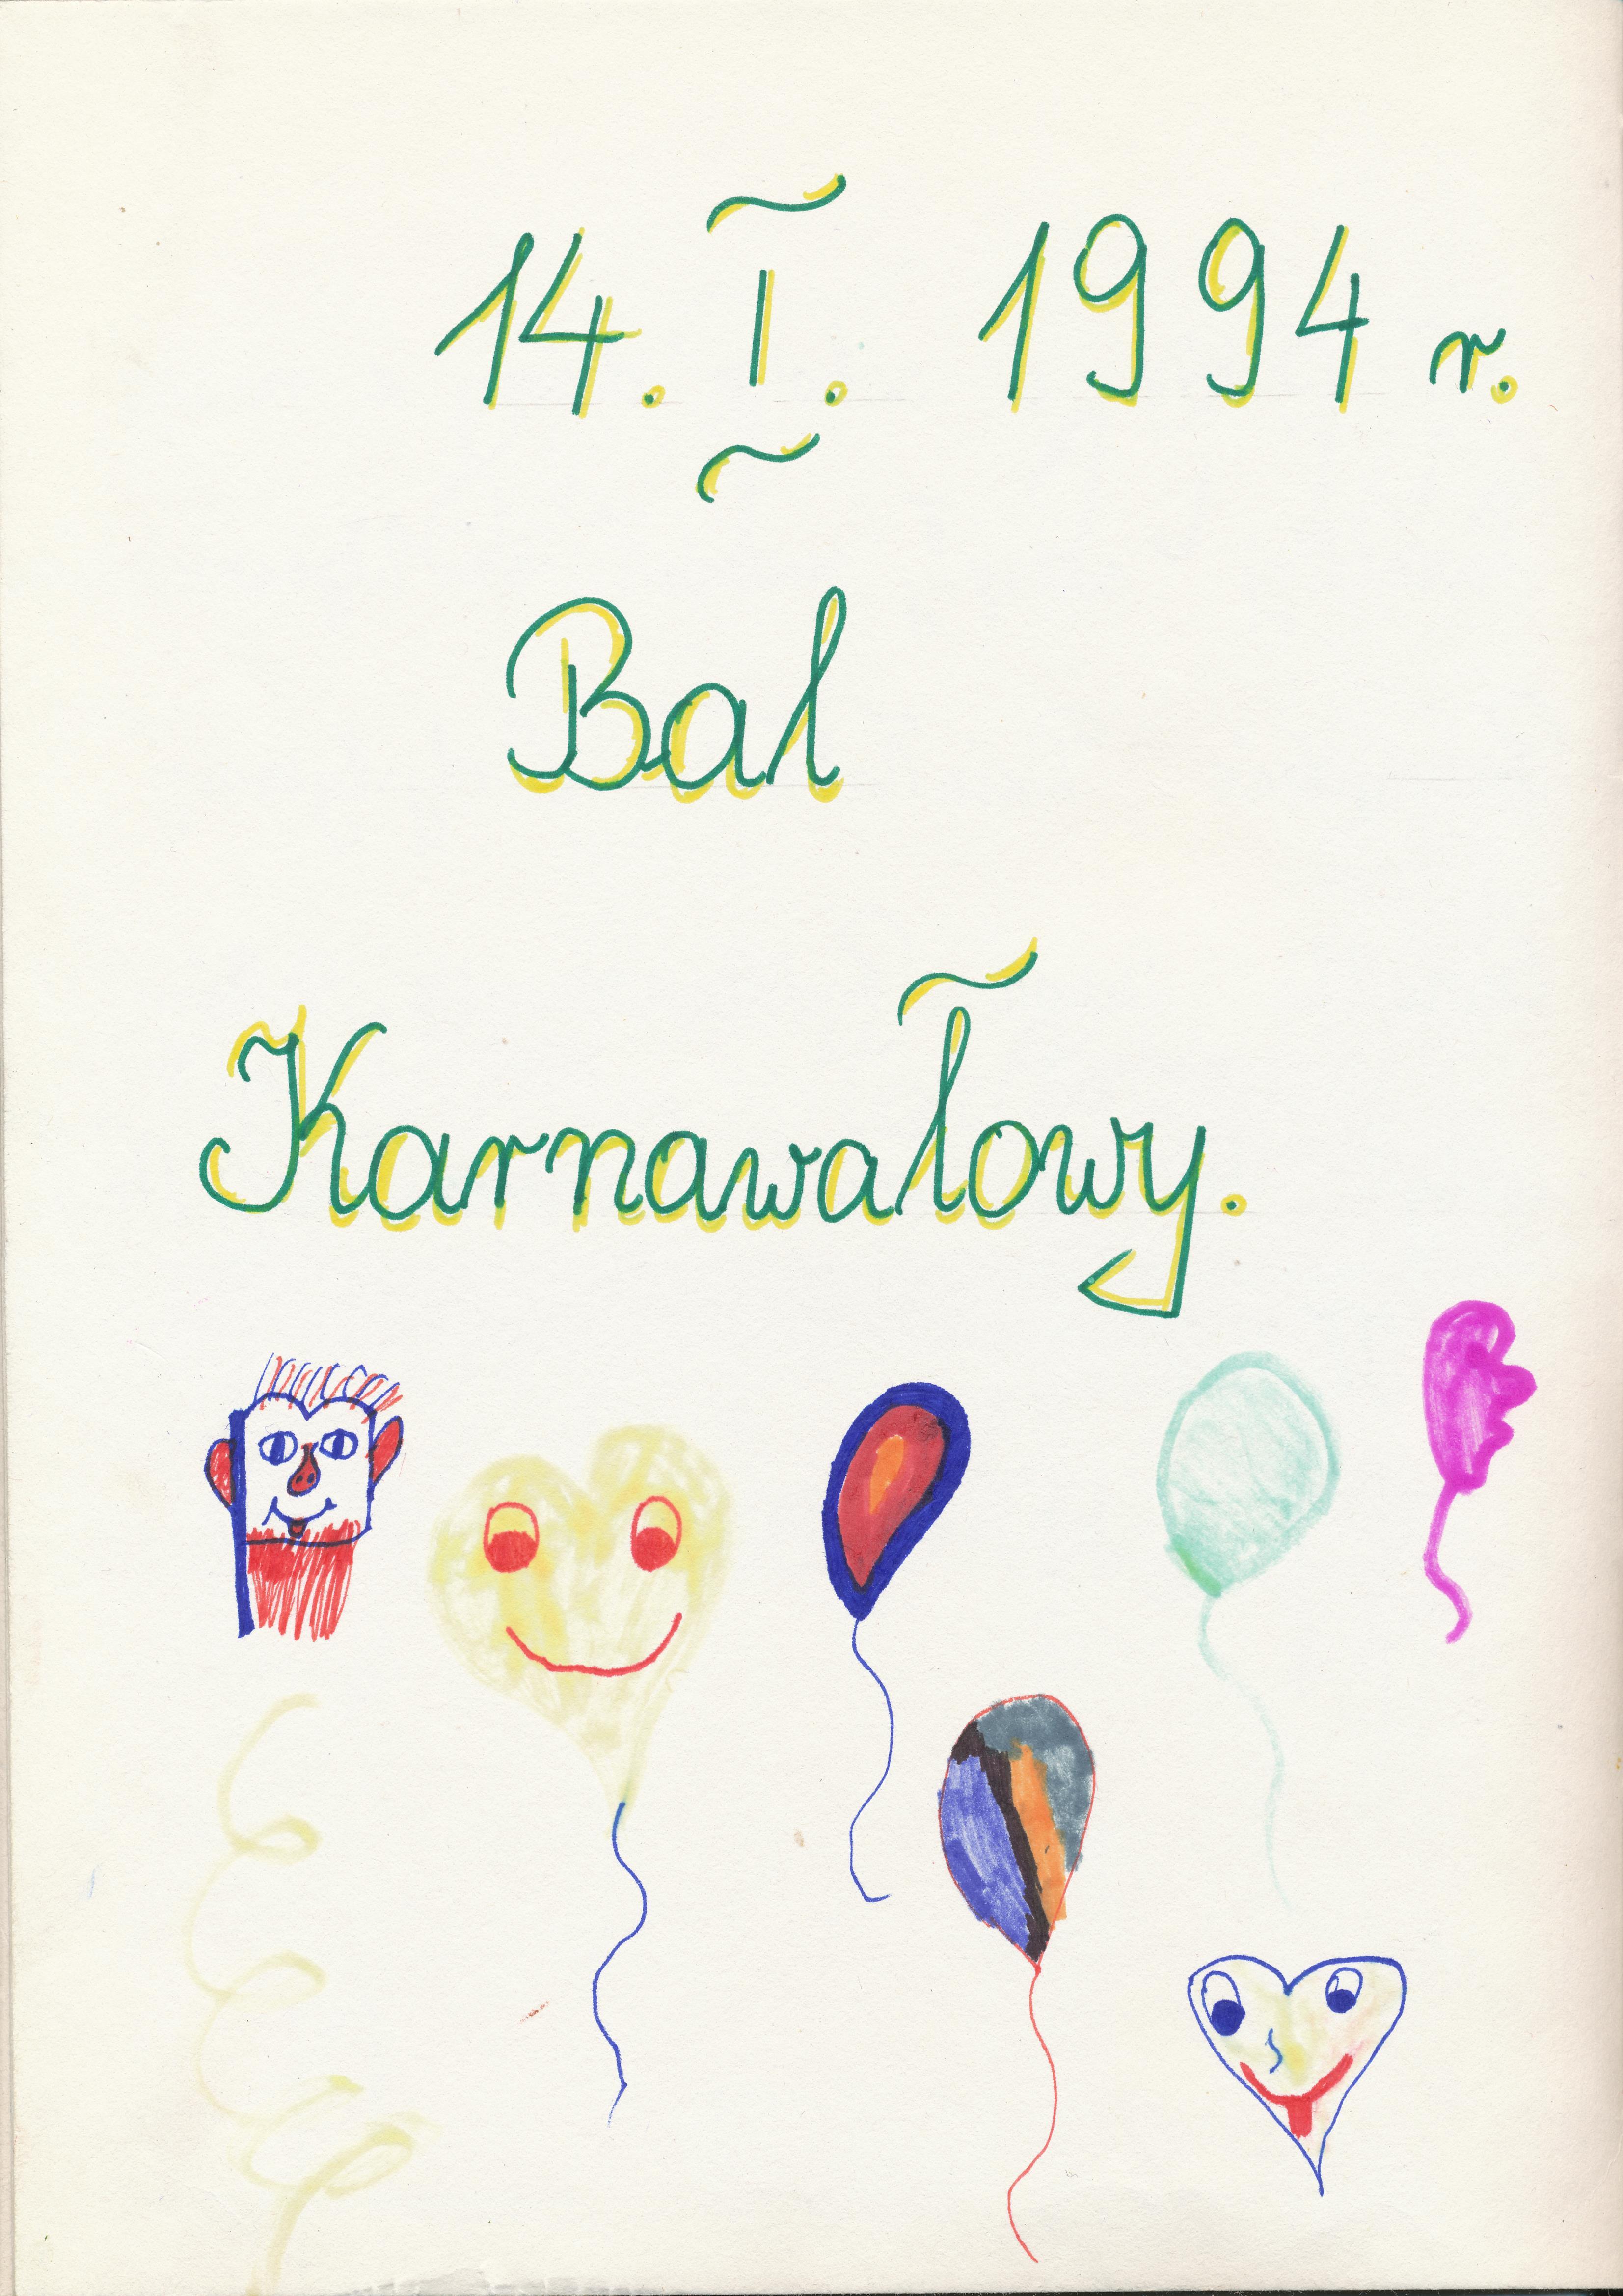 14. I. 1994 r.
Bal
Karnawałowy.